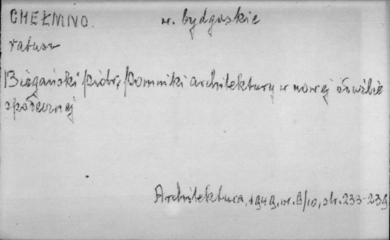 CHEŁMNO. w. bydgoskie
ratusz
Biegański Piotr, Pomniki architektury w nowej służbie
społecznej
Architektura, 1949, nr. 9/10, str. 233-239